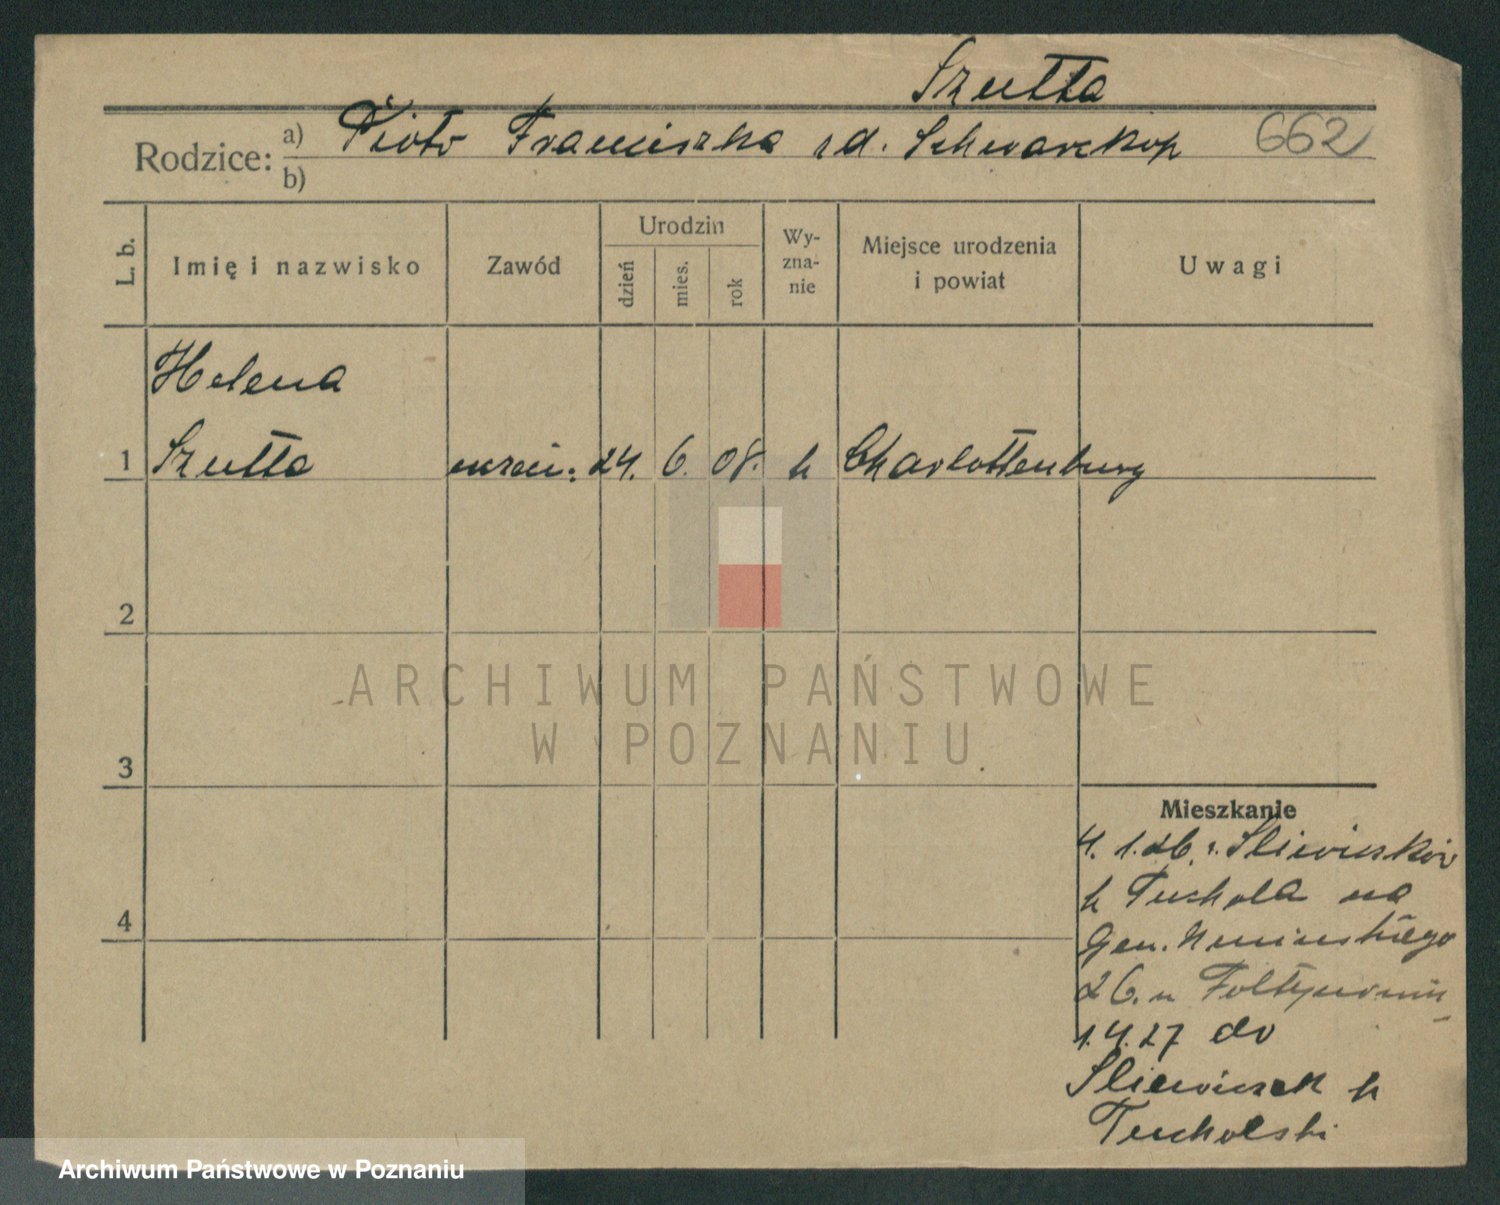 Szutta
Rodzice: a) Piotr Franciszka zd. Schwarzkop 662
b)
L. b. Imię i nazwisko Zawód Urodzin dzień mies. rok Wyzna-nie Miejsce urodzenia i powiat Uwagi
Helena
1 Szutta uczeń: 24. 6. 08. k Charlottenburg
2
ARCHIWUM PAŃSTWOWE
W POZNANIU
3
Mieszkanie
4. 1. 26. z. Śliwiczków
k Tuchola na
4 Gen. Umińskiego
26. u
1.4.27 do
Śliewiczek k
Tucholski
Archiwum Państwowe w Poznaniu